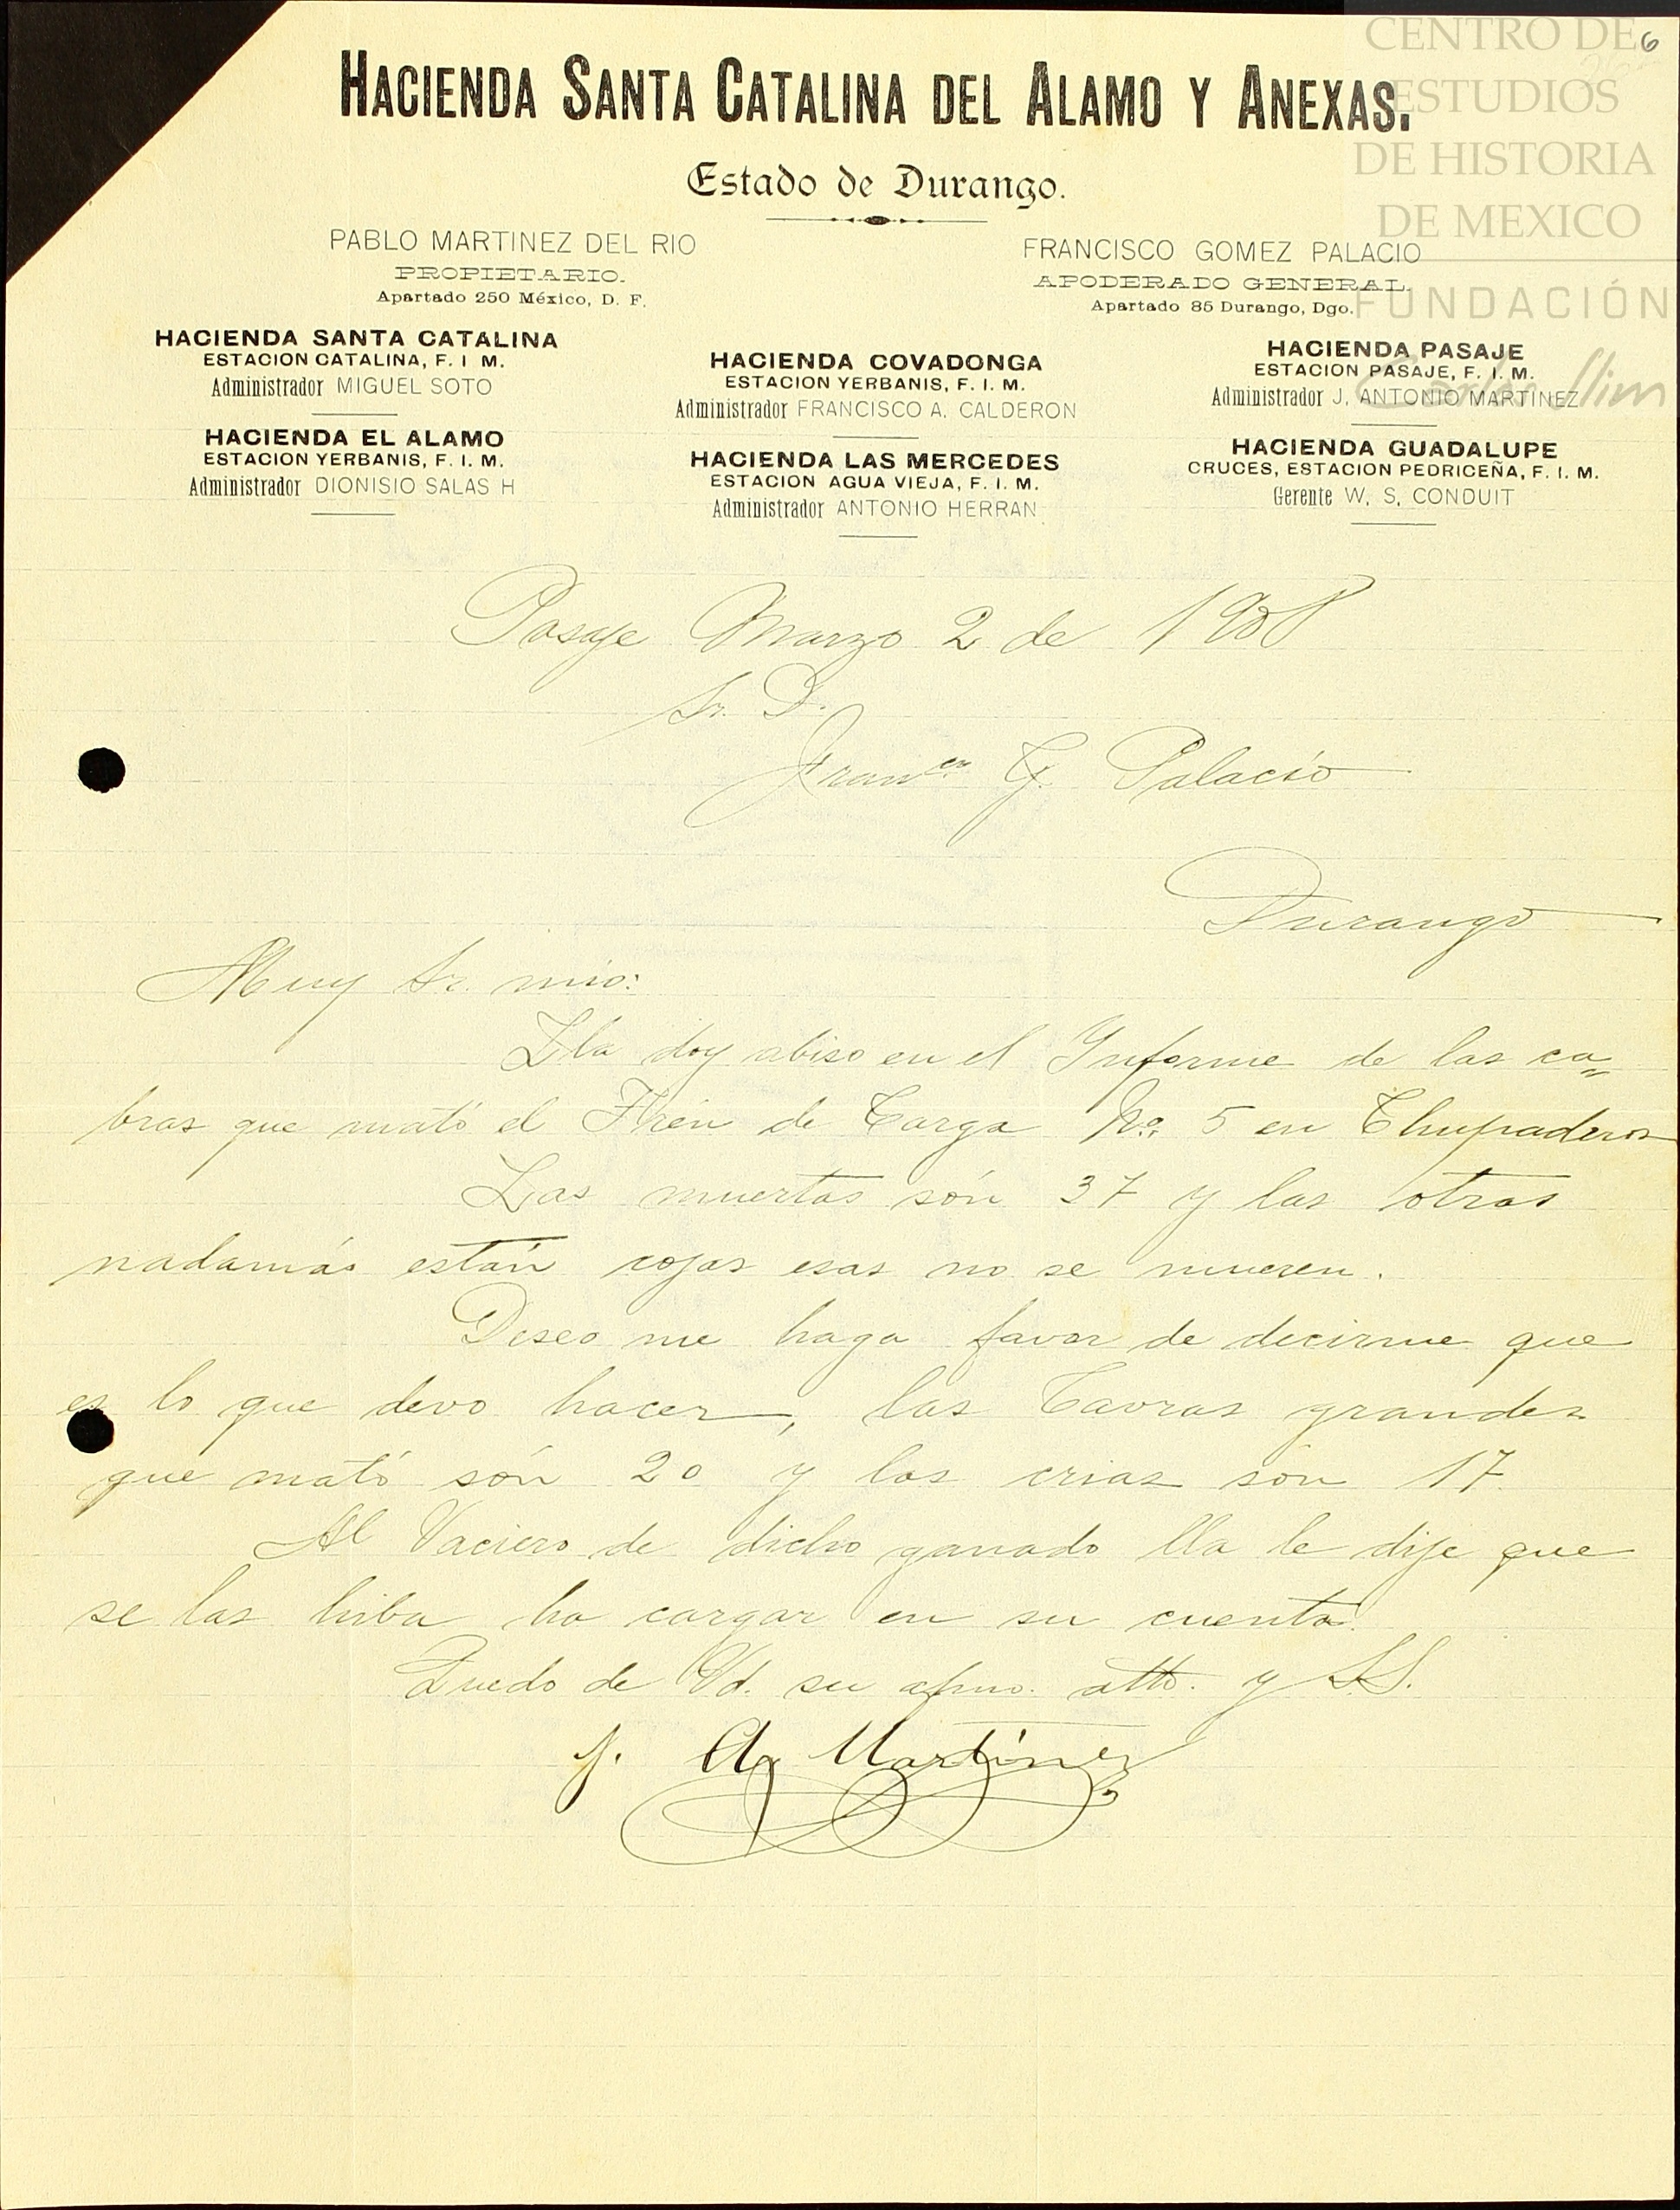 CENTRO DE
ESTUDIOS
DE HISTORIA
DE MEXICO
FUNDACIÓN
Carlos Slim
6
HACIENDA SANTA CATALINA DEL ALAMO Y ANEXAS.
Estado de Durango.
PABLO MARTINEZ DEL RIO
PROPIETARIO.
Apartado 250 México, D. F.
FRANCISCO GOMEZ PALACIO
APODERADO GENERAL.
Apartado 85 Durango, Dgo.
HACIENDA SANTA CATALINA
ESTACION CATALINA, F. I M.
Administrador MIGUEL SOTO
HACIENDA EL ALAMO
ESTACION YERBANIS, F. I. M.
Administrador DIONISIO SALAS H
HACIENDA COVADONGA
ESTACION YERBANIS, F. I. M.
Administrador FRANCISCO A. CALDERON
HACIENDA LAS MERCEDES
ESTACION AGUA VIEJA, F. I. M.
Administrador ANTONIO HERRAN
HACIENDA PASAJE
ESTACION PASAJE, F. I. M.
Administrador J. ANTONIO MARTINEZ
HACIENDA GUADALUPE
CRUCES, ESTACION PEDRICEÑA, F. I. M.
Gerente W. S. CONDUIT
Pasaje Marzo 2 de 1908
Sr. D.
Franco G. Palacio
Durango
Muy Sr. mio:
Lla doy abiso en el Informe de las ca=
bras que mató el Trén de Carga No. 5 en Chupaderos
Las muertas són 37 y las otras
nadamás están cojas esas no se mueren.
Deseo me haga favor de decirme que
es lo que devo hacer, las Cavras grandes
que mató són 20 y las crias són 17.
Al Vaciero de dicho ganado lla le dije que
se las hiba ha cargar en su cuenta.
Quedo de Vd. su afmo. atto. y S.S.
J. A. Martínez